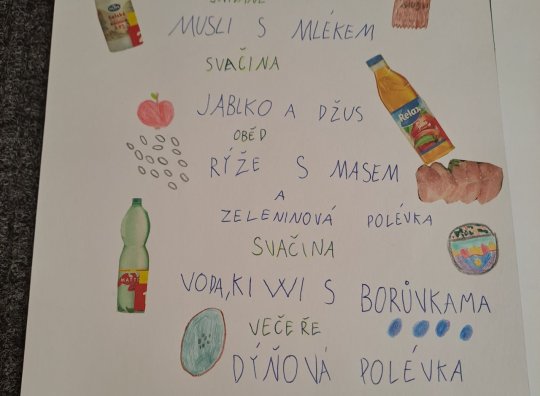 MUSLI S MLÉKEM
SVAČINA
JABLKO A DŽUS
Relax
OBĚD
RÝŽE S MASEM
A
ZELENINOVÁ POLÉVKA
SVAČINA
VODA, KIWI S BORŮVKAMA
VEČEŘE
DÝŇOVÁ POLÉVKA